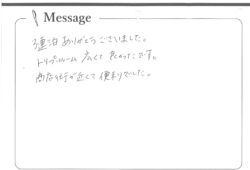 Message
3連泊ありがとうございました。
トリプルルーム広くて良かったです。
商店街が近くて便利でした。